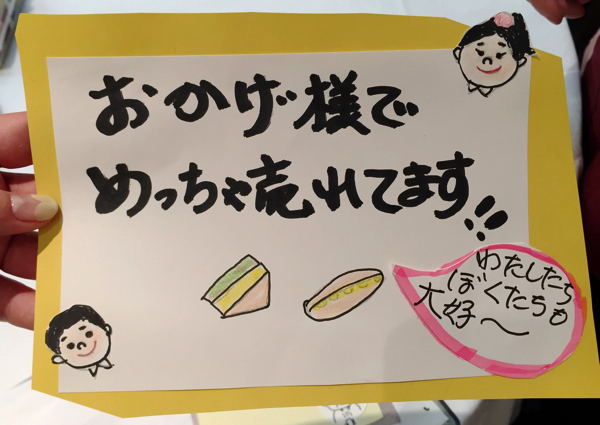 おかげ様で
めっちゃ売れてます!!
わたしたち
ぼくたちも
大好〜